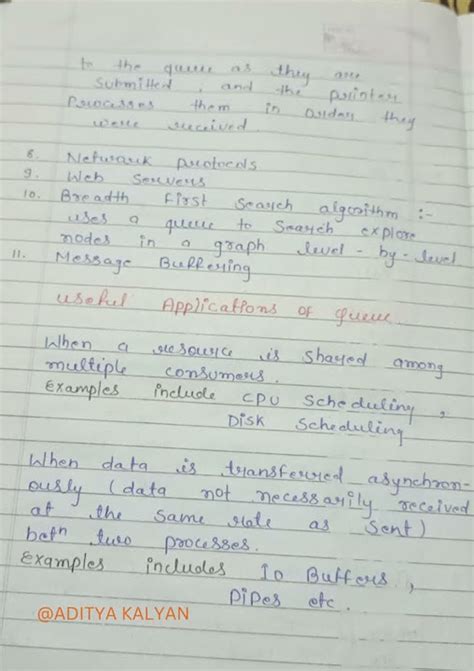 to the queue as they are
submitted, and the printer
Processes them in order they
were received.
8. Network protocols
9. Web Servers
10. Breadth First Search algorithm :-
uses a queue to search explore
nodes in a graph level-by-level
11. Message Buffering
useful Applications of queue.
When a resource is shared among
multiple consumers.
Examples include CPU Scheduling,
Disk Scheduling
When data is transferred asynchron-
ously (data not necessarily received
at the same rate as sent)
betn two processes.
Examples includes IO Buffers,
Pipes etc.
@ADITYA KALYAN